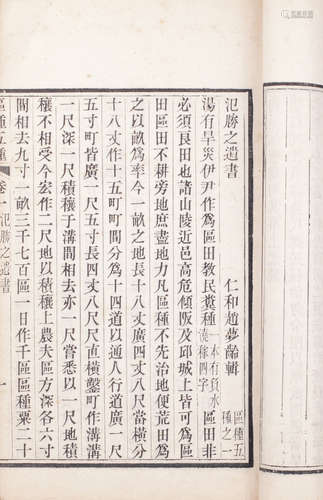 氾勝之遺書
仁和趙夢齡輯 區種五種之一
湯有旱災伊尹作爲區田敎民糞種一本有負水澆稼四字區田非
必須良田也諸山陵近邑高危傾阪及邱城上皆可爲區
田區田不耕旁地庶盡地力凡區種不先治地便荒田爲
之以畝爲率令一畝之地長十八丈廣四丈八尺當橫分
十八丈作十五町町間分爲十四道以通人行道廣一尺
五寸町皆廣一尺五寸長四丈八尺尺直橫鑿町作溝溝
一尺深一尺積穰于溝間相去亦一尺嘗悉以一尺地積
穰不相受令宏作二尺地以積穰上農夫區方深各六寸
間相去九寸一畝三千七百區一日作千區區種粟二十
區種五種 卷一 氾勝之遺書 一